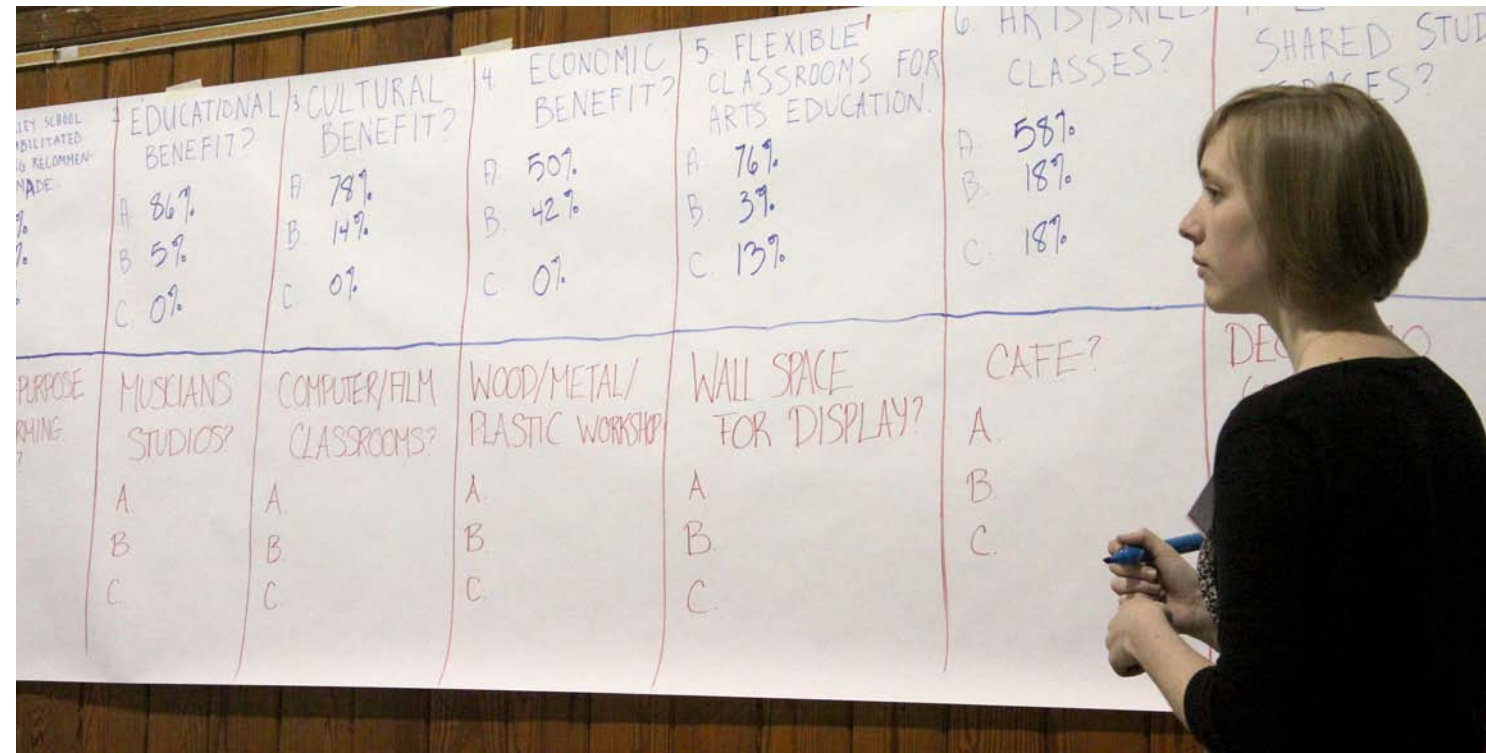 SCHOOL
RECOMMEN-
MADE.
%
%
2. EDUCATIONAL
BENEFIT?
A. 86%
B 5%
C. 0%
3. CULTURAL
BENEFIT?
A 78%
B. 14%
C. 0%
4. ECONOMIC
BENEFIT?
A. 50%
B. 42%
C. 0%
5. FLEXIBLE
CLASSROOMS FOR
ARTS EDUCATION.
A. 76%
B. 3%
C. 13%
6. ARTS/SKILLS
CLASSES?
A. 58%
B. 18%
C. 18%
SHARED STUD
SPACES?
PURPOSE
?
MUSCIANS
STUDIOS?
A.
B.
C.
COMPUTER/FILM
CLASSROOMS?
A.
B.
C.
WOOD/METAL/
PLASTIC WORKSHOP
A.
B
C.
WALL SPACE
FOR DISPLAY?
A
B.
C.
CAFE?
A.
B.
C.